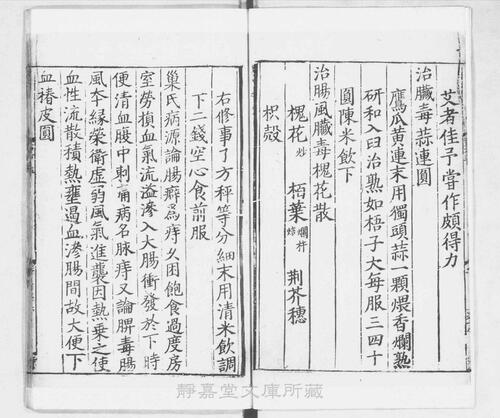 艾者佳予嘗作頗得力
治臟毒蒜連圓
鷹瓜黄連末用獨頭蒜一顆煨香爛熟
研和入臼治熟如梧子大每服三四十
圓陳米飲下
治腸風臟毒槐花散
槐花炒 栢葉爛杵焙 荆芥穗
枳殼
右修事了方秤等分細末用清米飲調
下二錢空心食前服
巢氏病源論腸癖為痔久困飽食過度房
室勞損血氣流溢滲入大腸衝發於下時
便清血腹中刺痛病名脉痔又論脾毒腸
風本緣榮衛虚弱風氣進襲因熱乗之使
血性流散積熱壅遏血滲腸間故大便下
血椿皮圓
靜嘉堂文庫所藏